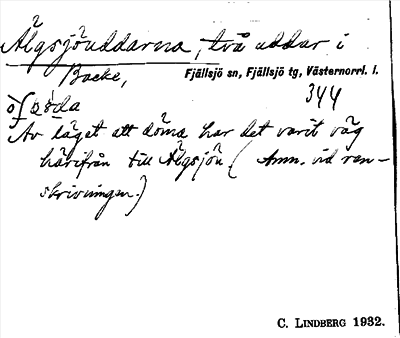 Älgsjöuddarna, två uddar i
Backe, Fjällsjö sn, Fjällsjö tg, Västernorrl. l.
344
Av läget att döma har det varit väg
härifrån till Älgsjön (Anm. vid ren-
skrivningen.)
C. LINDBERG 1932.